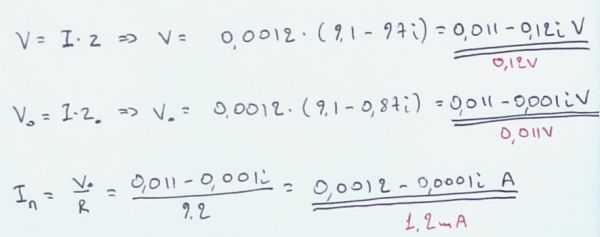 V = I · z ⇒ V = 0,0012 · (9,1 - 97i) = 0,011 - 0,12i V
0,12V
V₀ = I · z₀ ⇒ V₀ = 0,0012 · (9,1 - 0,87i) = 0,011 - 0,001i V
0,011V
Iₙ = V₀/R = (0,011 - 0,001i)/9.2 = 0,0012 - 0,0001i A
1,2mA